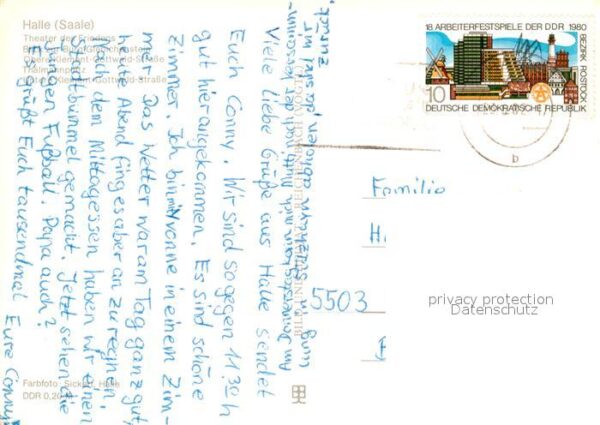 Halle (Saale)
Theater des Friedens
Obere Klement-Gottwald-Straße
Untere Klement-Gottwald-Straße
Farbfoto: Sickert, Halle
DDR 0,20
18. ARBEITERFESTSPIELE DER DDR 1980
BEZIRK ROSTOCK
10
DEUTSCHE DEMOKRATISCHE REPUBLIK
b
Viele liebe Grüße aus Halle sendet
Euch Conny. Wir sind so gegen 11.30 h
gut hier angekommen. Es sind schöne
Zimmer. Ich bin mit Yvonne in einem Zim-
mer. Das Wetter war am Tag ganz gut,
heute Abend fing es aber an zu regnen.
Nach dem Mittagessen haben wir einen
Stadtbummel gemacht. Jetzt sehen die
Jungen Fußball. Papa auch?
Es grüßt Euch tausendmal Eure Conny
Am Donnerstag
zurück.
BILD UND HEIMAT REICHENBACH (VOGTL)
Familie
H
5503
privacy protection
Datenschutz